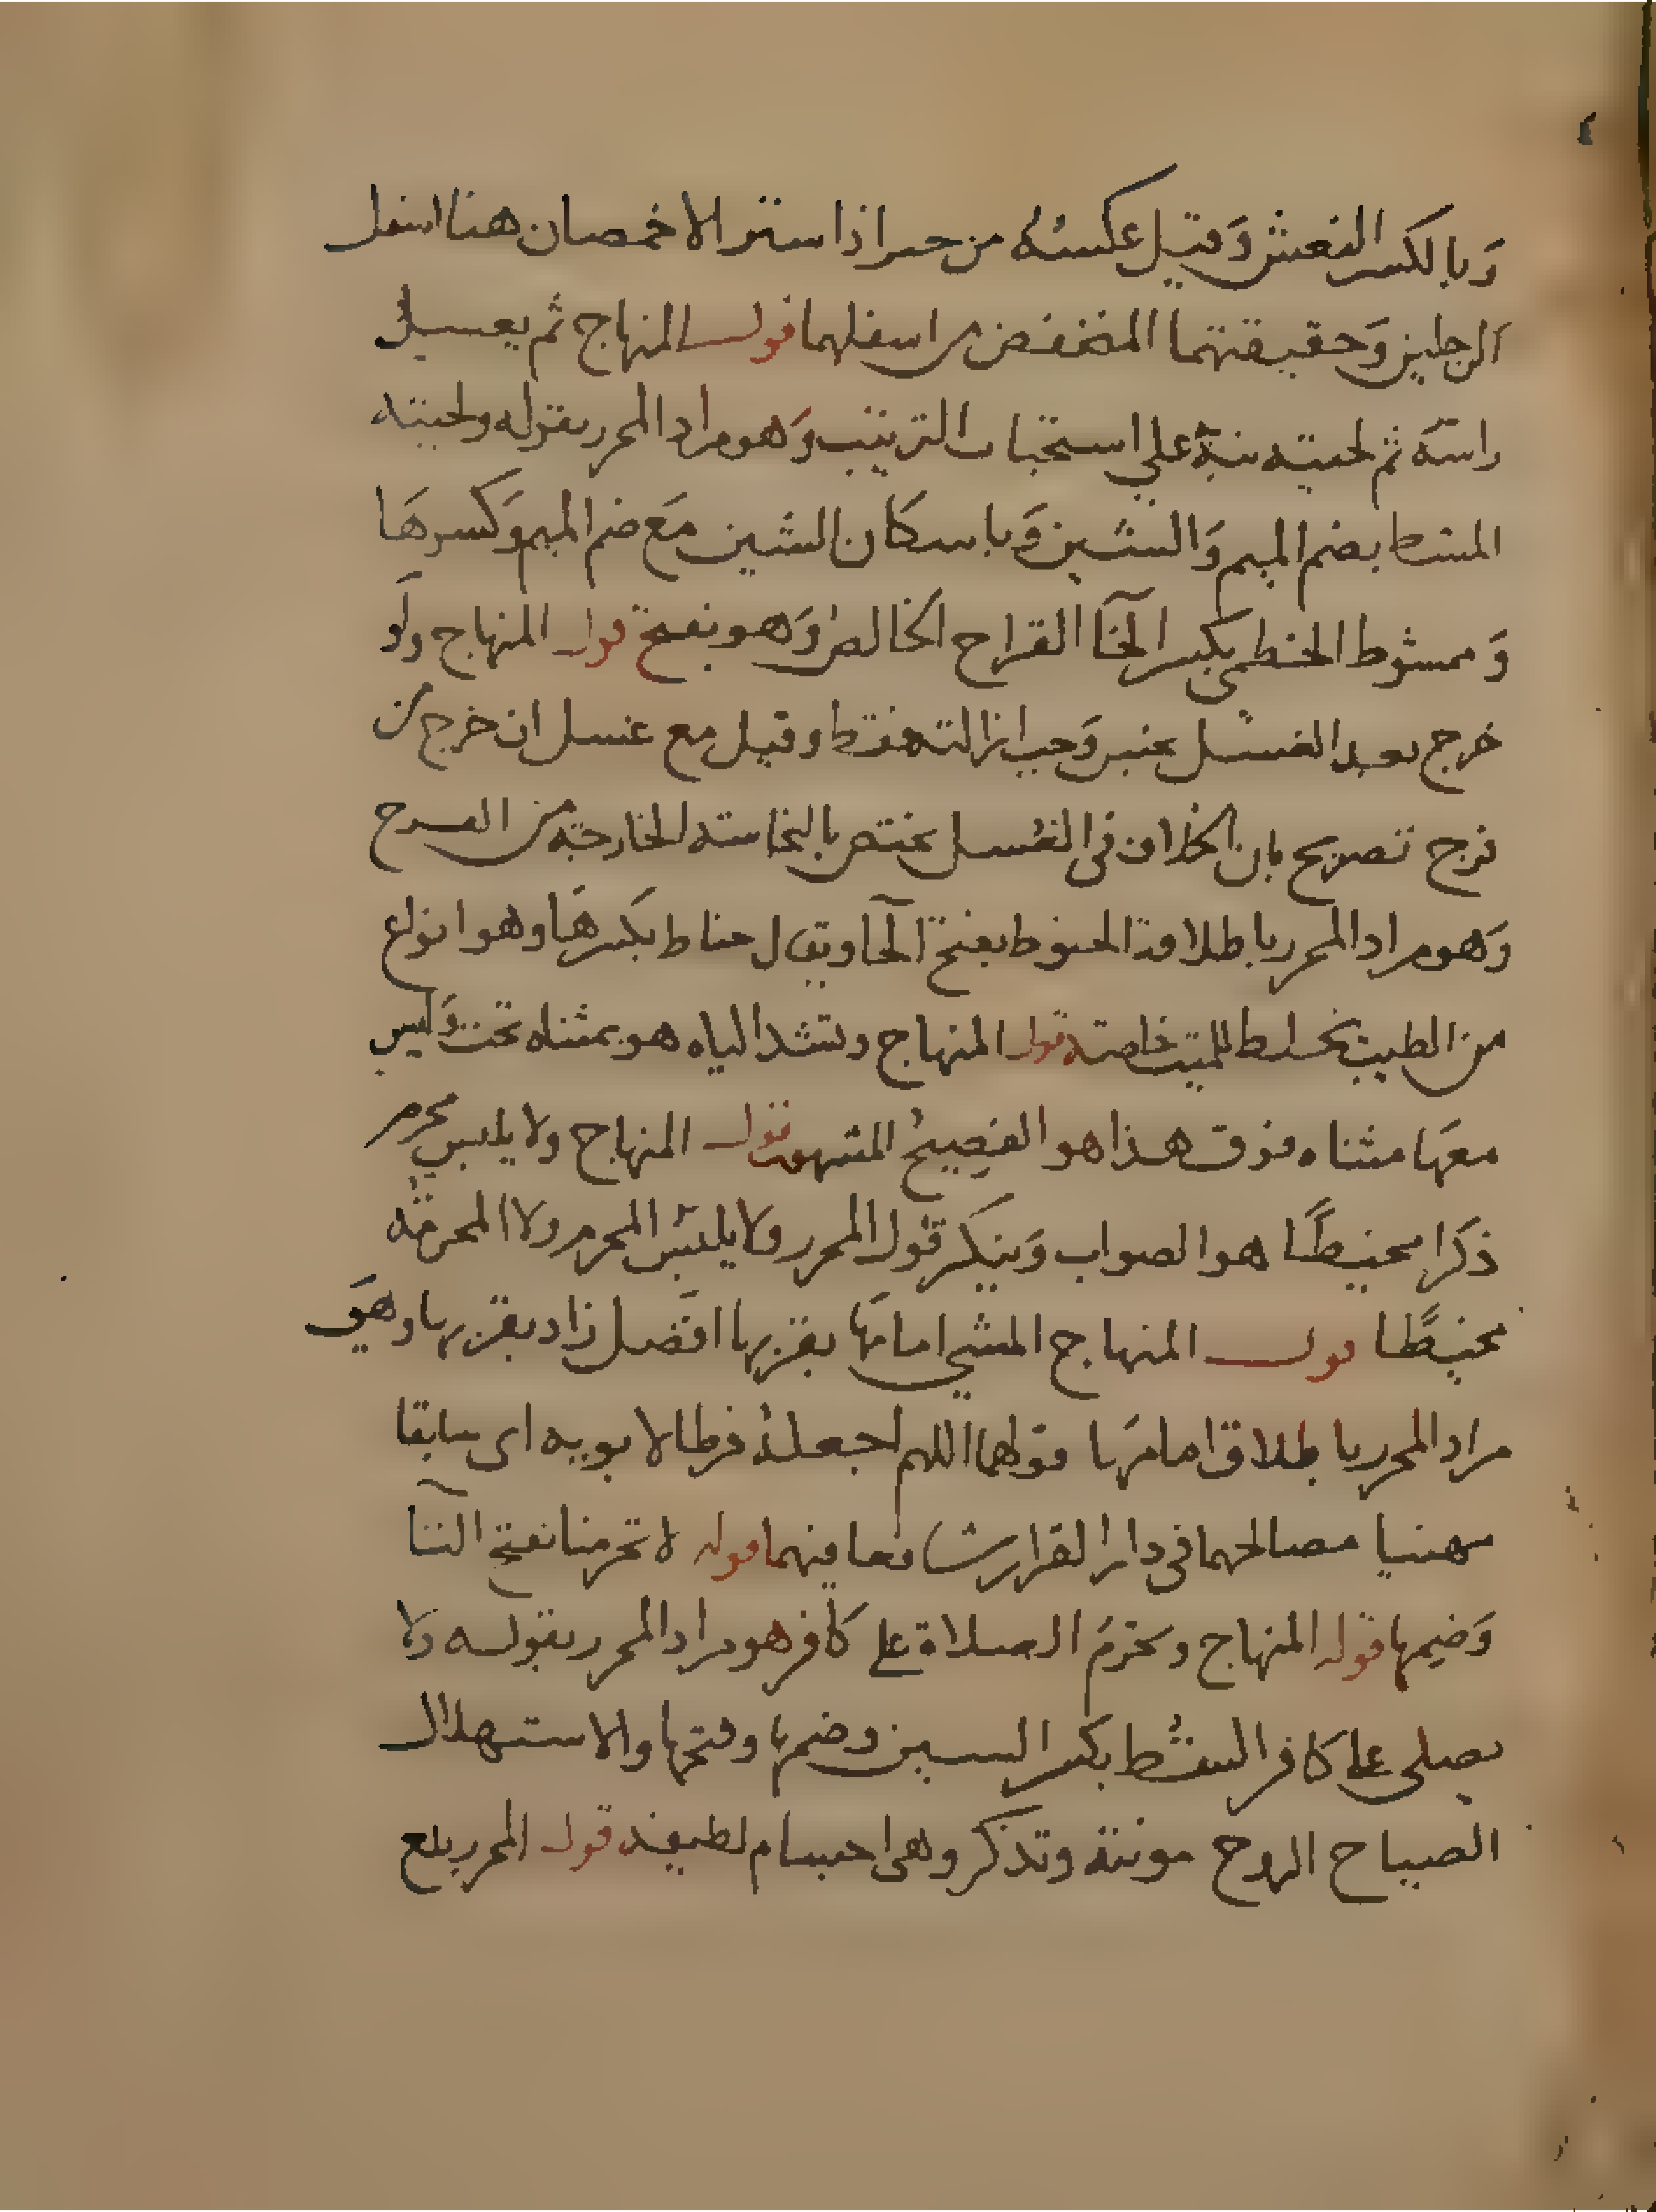 وَبالكسر النعش وَقيل عكسه من جنز اذا ستر الاخمصان هنا اسفل
الرجلين وَحقيقتهما المنخفض من اسفلهما قول المنهاج ثم يغسل
راسَه ثم لحيته نبه على استحباب الترتيب وَهو مراد المحرر بقوله ولحيته
المشط بضم الميم وَالشين وَباسكان الشين مَع ضم الميم وَكسرهَا
وَممشوط الخطمي بكسر الخآ القراح الخالص وَهو بفتح قول المنهاج ولَو
خرج بعد الغسل نجس وَجب ازالته فقط وقيل مع غسل ان خرج من
فرج تصريح بان الخلاف في الغسل يختص بالنجاسة الخارجة من الفرج
وَهو مراد المحرر باطلاقه الحنوط بفتح الحآ ويقال حناط بكسرهَا وهو انواع
من الطيب يخلط للميت خاصة قول المنهاج وتشد الياه هو بمثناه تحت وَليس
معهَا مثناه فوق هذا هو الفصيح المشهور قول المنهاج ولا يلبس محرم
ذكرا محيطًا هو الصواب وَينكر قول المحرر ولا يلبس المحرم ولا المحرمة
مخيطًا قول المنهاج المشي امامهَا بقربها افضل زاد بقربها وهيَ
مراد المحرر باطلاق امامهَا قولهما اللهم اجعله فرطا لابويه اي سابقا
مهنيا مصالحهما في دار القرار شافعا فيهما قوله لا تحرمنا بفتح التآ
وَضمِها قوله المنهاج وتحرُم الصلاة على كافر هو مراد المحرر بقوله ولا
يصلى على كافر السقط بكسر السين وضمها وفتحها والاستهلال
الصياح الروح مونثة وتذكر وهي اجسام لطيفة قول المحرر بلع